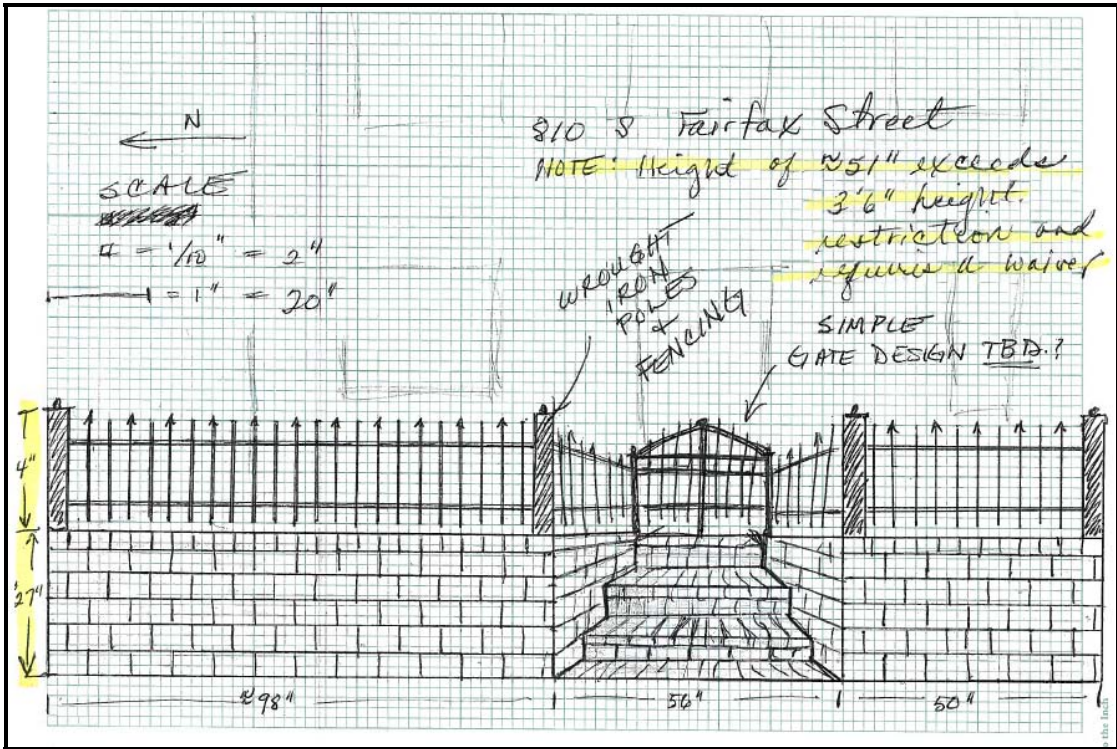 N
810 S Fairfax Street
NOTE: Height of ≈51" exceeds
3'6" height.
restriction and
requires a waiver
SCALE
= 1/10" = 2"
= 1" = 20"
WROUGHT
IRON
POLES
+
FENCING
SIMPLE
GATE DESIGN TBD.?
4"
27"
≈98"
56"
50"
o the Inch